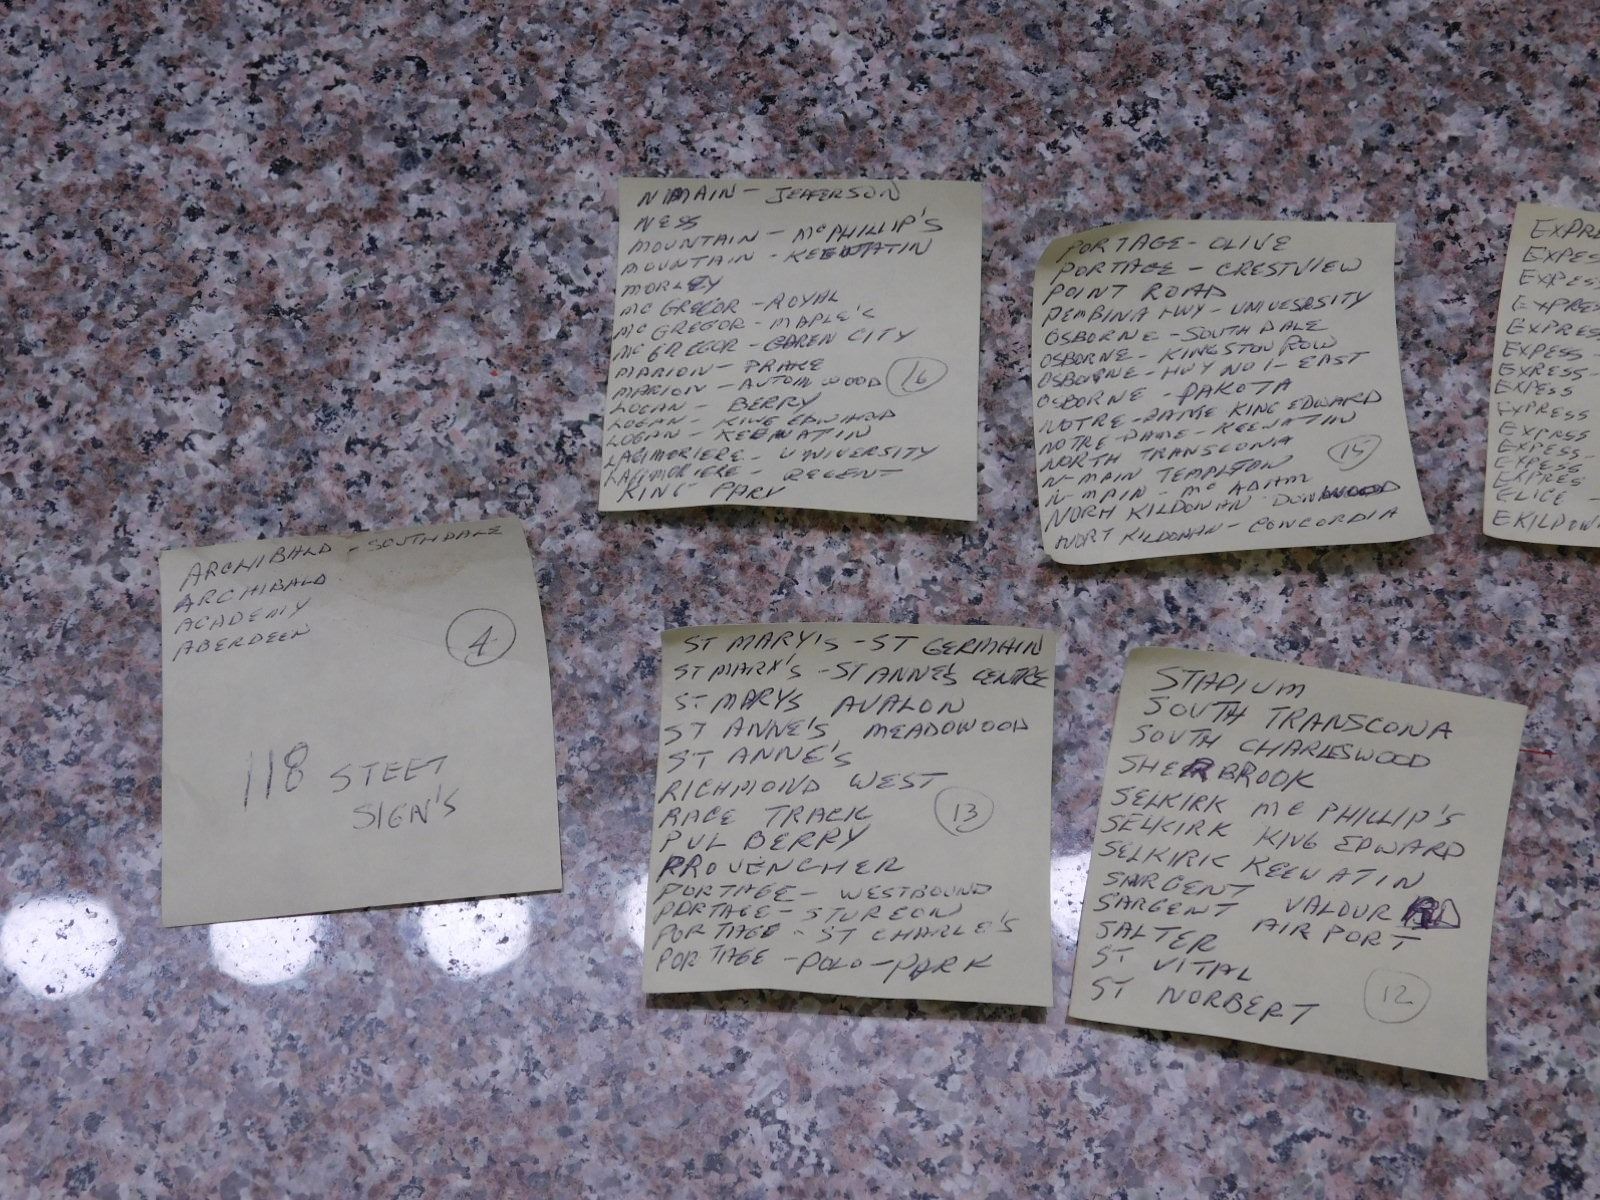 N MAIN - JEFFERSON
NESS
MOUNTAIN - McPHILLIP'S
MOUNTAIN - KEEWATIN
MORLEY
MC GREGOR - ROYAL
MC GREGOR - MAPLE'S
MC GREGOR - GAREN CITY
MARION - DRAKE
MARION - WOOD
16
LOGAN - BERRY
LOGAN - KING EDWARD
LOGAN - KEEWATIN
LAGIMORIERE - UNIVERSITY
LAGIMORIERE - REGENT
KING PARK
PORTAGE - OLIVE
PORTAGE - CRESTVIEW
POINT ROAD
PEMBINA HWY - UNIVESRSITY
OSBORNE - SOUTH DALE
OSBORNE - KINGSTON ROW
OSBORNE - HWY NO 1 - EAST
OSBORNE - DAKOTA
NOTRE-DAME KING EDWARD
NOTRE-DAME - KEEWATIN
NORTH TRANSCONA
15
N-MAIN TEMPLTON
N-MAIN - MC ADAM
NORH KILDONAN DONWOOD
NORT KILDONAN - CONCORDIA
EXPRE
EXPES
EXPRES
EXPRES
EXPESS -
EXRESS -
EXPESS
EXPRESS
EXPRESS
EXPESS -
EXPESS
EXPRES
ELICE -
EKILDON
ARCHIBALD - SOUTHDALE
ARCHIBALD
ACADEMY
ABERDEEN
4
118 STEET
SIGN'S
ST MARY'S - ST GERMAIN
ST MARY'S - ST ANNE'S CENTRE
ST MARYS AVALON
ST ANNE'S MEADOWOOD
ST ANNE'S
RICHMOND WEST
RACE TRACK
13
PUL BERRY
PROVENCHER
PORTAGE - WESTBOUND
PORTAGE - STURGEON
PORTAGE - ST CHARLE'S
PORTAGE - POLO - PARK
STADIUM
SOUTH TRANSCONA
SOUTH CHARLESWOOD
SHERBROOK
SELKIRK MC PHILLIP'S
SELKIRK KING EDWARD
SELKIRK KEEWATIN
SARGENT VALOUR RD
SARGENT AIR PORT
SALTER
ST VITAL
ST NORBERT
12